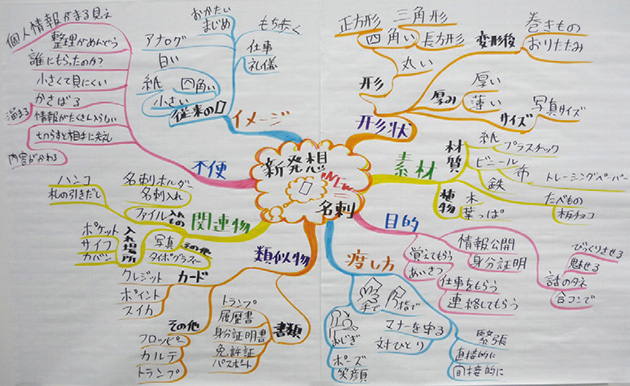 新発想
NEW
名刺
イメージ
おかたい
まじめ
アナログ
白い
紙
四角い
小さい
従来の口
もち歩く
仕事
礼儀
不便
個人情報がまる見え
整理がめんどう
誰にもらったのか?
小さくて見にくい
かさばる
溜まる
情報がたくさん入らない
切らすと相手に失礼
内容がかわる
関連物
ハンコ
札の引きだし
名刺ホルダー
名刺入れ
ファイル
入れもの
入れ場所
ポケット
サイフ
カバン
その他
写真
タイポグラフィー
類似物
カード
クレジット
ポイント
スイカ
その他
フロッピー
カルテ
トランプ
書類
トランプ
履歴書
身分証明書
免許証
パスポート
形状
形
正方形
三角形
四角い
長方形
丸い
変形後
巻きもの
おりたたみ
厚み
厚い
薄い
サイズ
写真サイズ
素材
材質
紙
プラスチック
ビニール
布
トレーシングペーパー
鉄
植物
木
葉っぱ
たべもの
板チョコ
目的
情報公開
身分証明
覚えてもらう
あいさつ
仕事をもらう
連絡してもらう
話のタネ
びっくりさせる
魅せる
合コンで
渡し方
手で
おじぎ
ポーズ
笑顔
マナーを守る
対ひとり
緊張
直接的に
間接的に